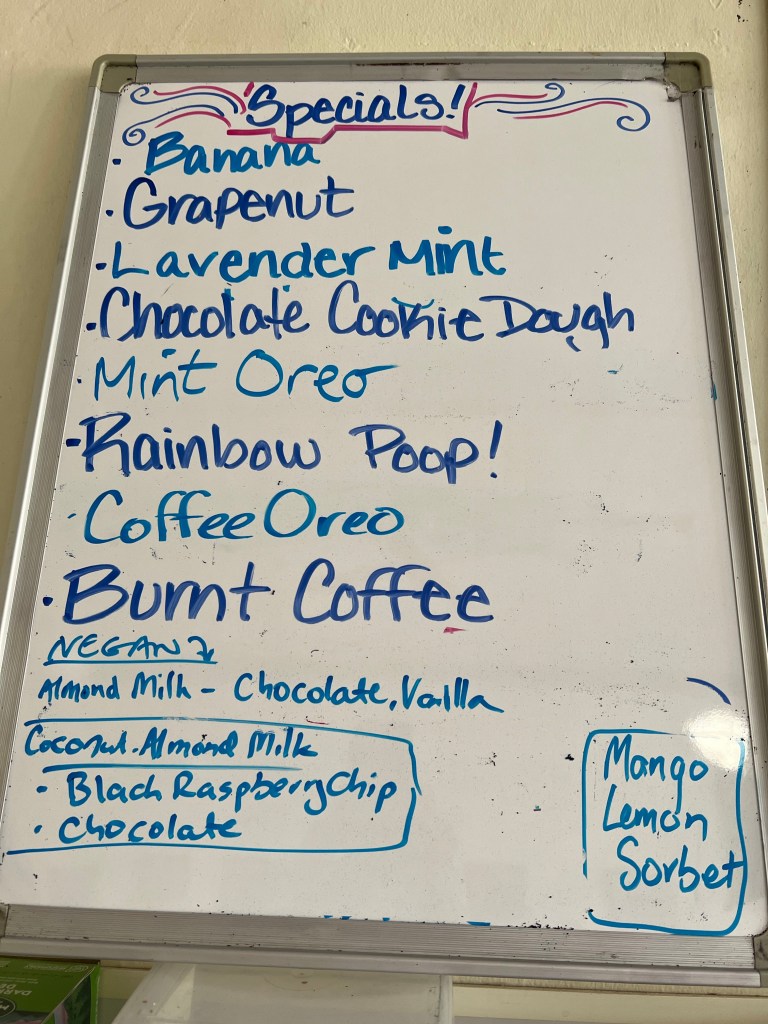 Specials!
· Banana
· Grapenut
· Lavender Mint
· Chocolate Cookie Dough
· Mint Oreo
- Rainbow Poop!
· Coffee Oreo
· Burnt Coffee
VEGAN
Almond Milk - Chocolate, Vailla
Coconut. Almond Milk
- Black Raspberry Chip
· Chocolate
Mango
Lemon
Sorbet
DAR